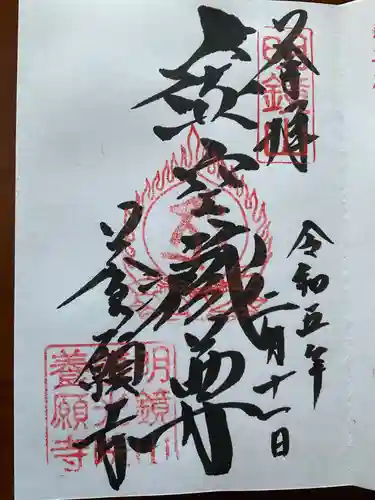 奉拝
明鏡山
令和五年
二月十一日
虚空蔵尊
養願寺
明鏡山
養願寺